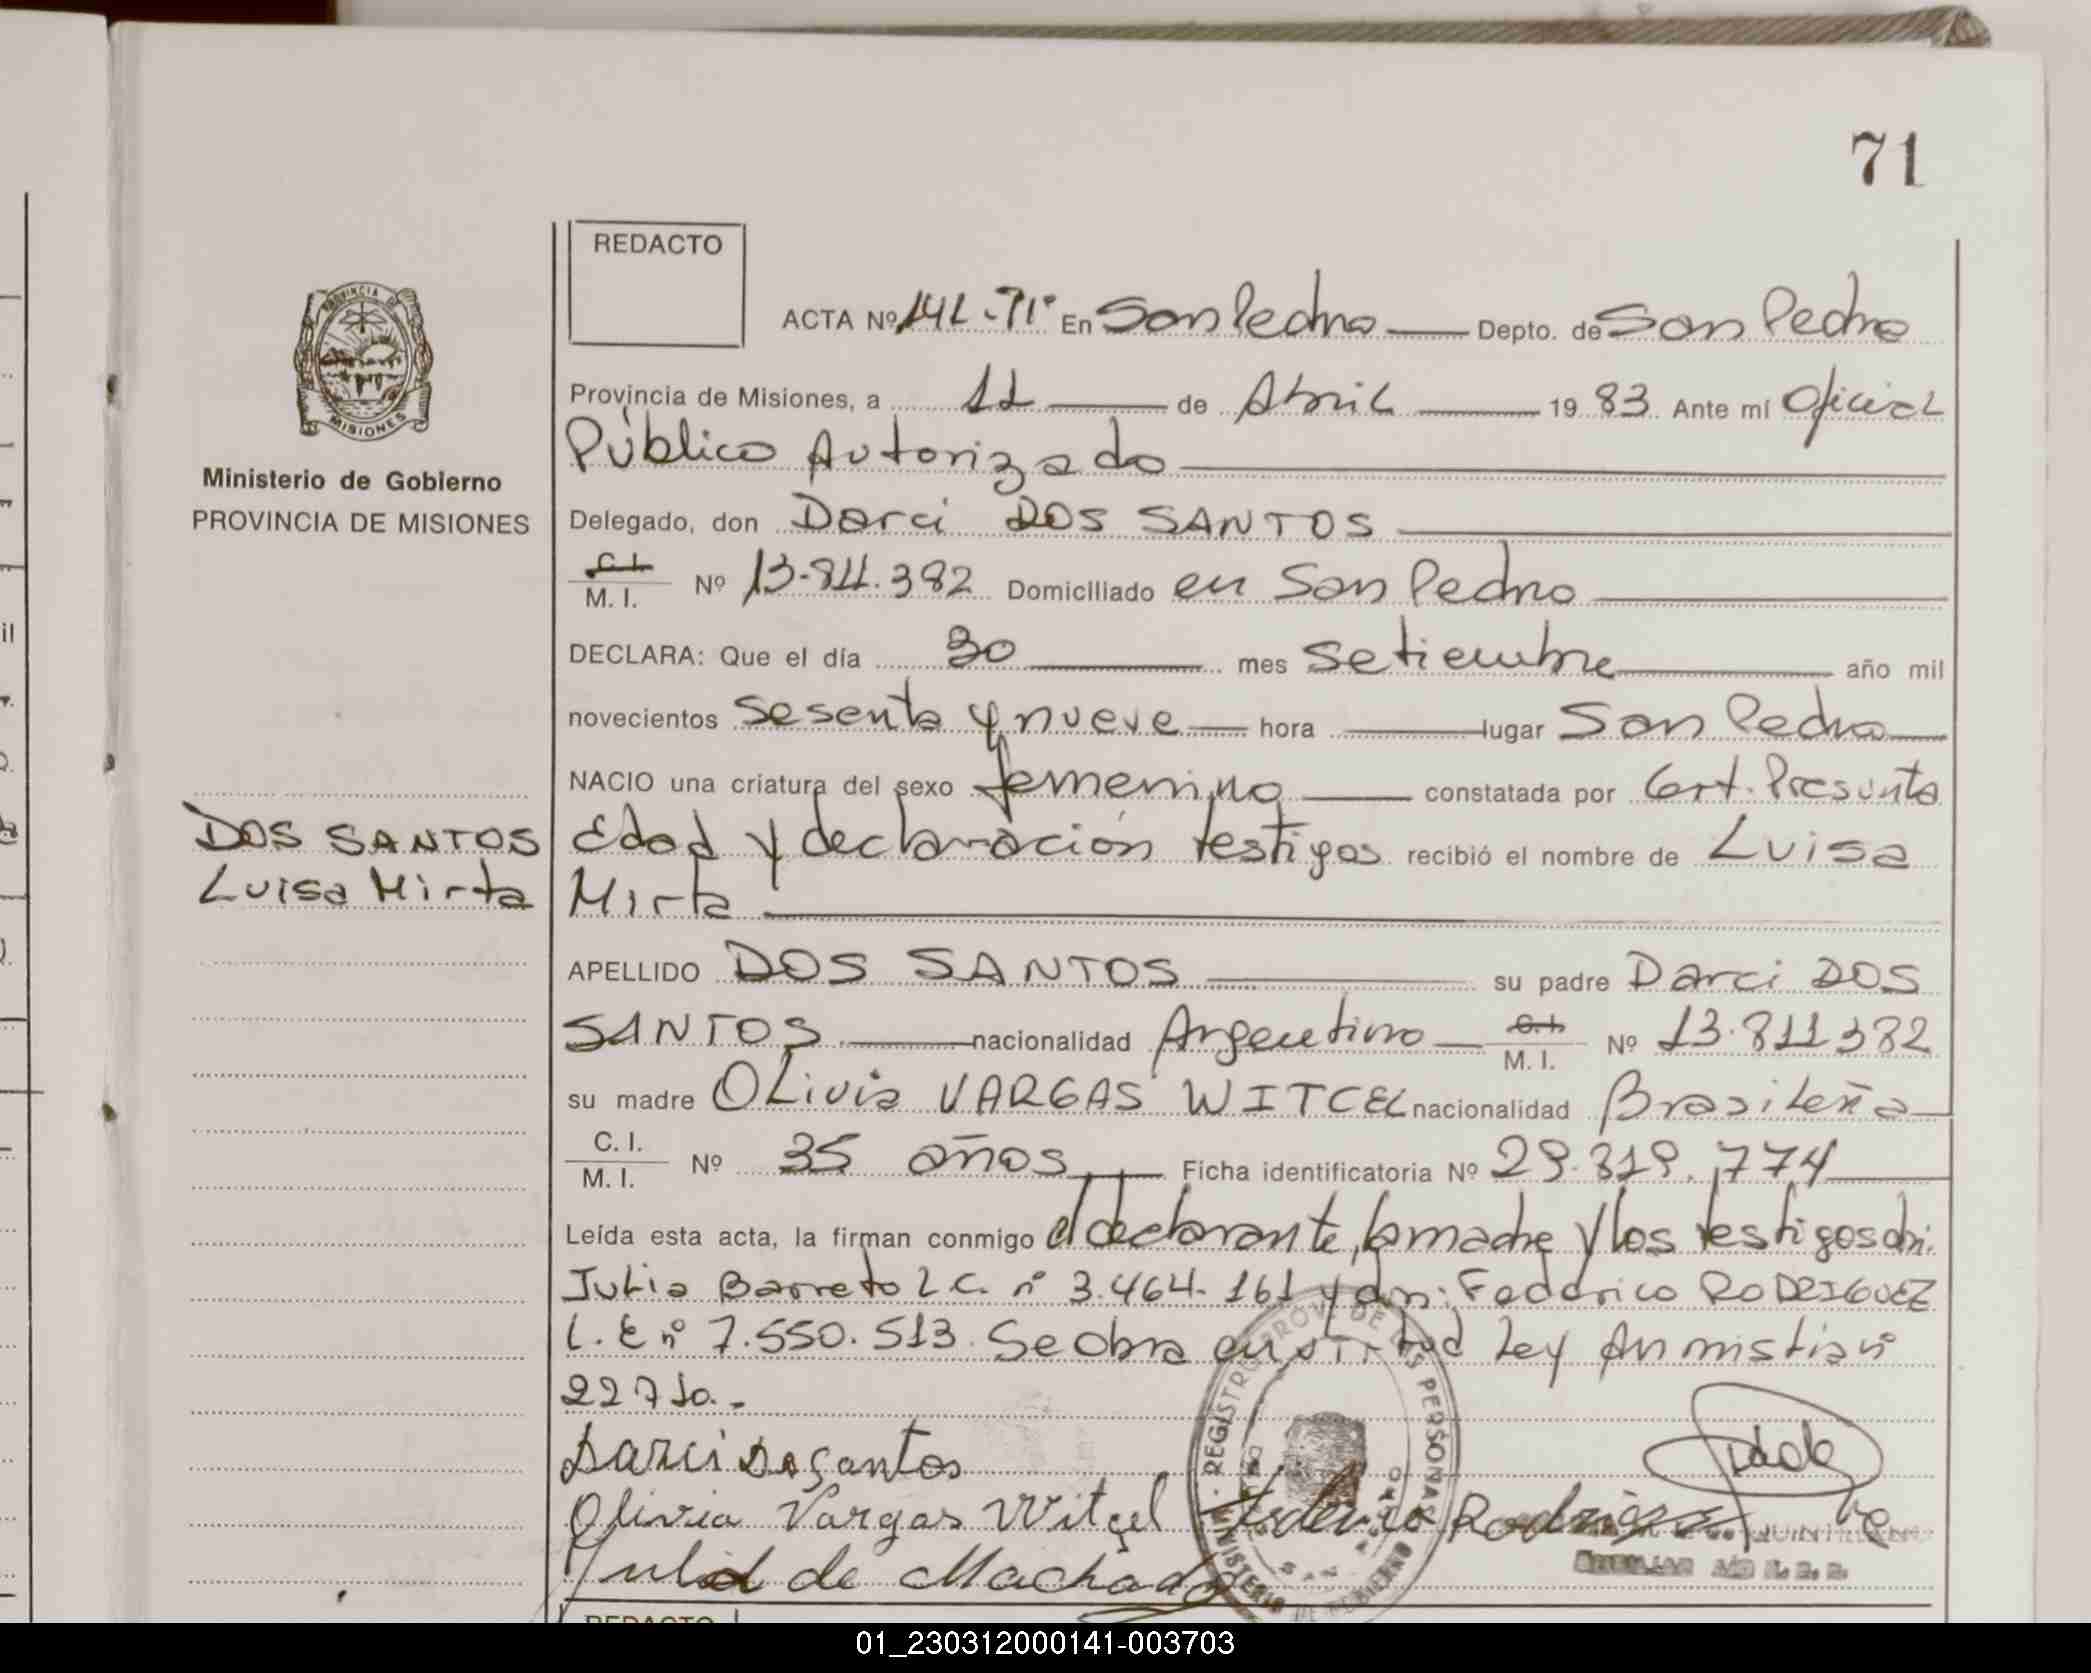 71
REDACTO
PROVINCIA DE
MISIONES
ACTA Nº 141-71º En San Pedro Depto. de San Pedro
Provincia de Misiones, a 11 de Abril 1983 Ante mí Oficial
Público Autorizado
Ministerio de Gobierno
PROVINCIA DE MISIONES
Delegado, don Darci DOS SANTOS
C. I.
M. I. Nº 13.811.382 Domiciliado en San Pedro
DECLARA: Que el día 30 mes setiembre año mil
novecientos sesenta y nueve hora lugar San Pedro
NACIO una criatura del sexo femenino constatada por Cert. Presunta
DOS SANTOS
Luisa Mirta
Edad y declaración testigos recibió el nombre de Luisa
Mirta
APELLIDO DOS SANTOS su padre Darci DOS
SANTOS nacionalidad Argentino C. I. M. I. Nº 13.811.382
su madre Olivia VARGAS WITCEL nacionalidad Brasileña
C. I.
M. I. Nº 35 años Ficha identificatoria Nº 29.819.774
Leída esta acta, la firman conmigo el declarante, la madre y los testigos dñ.
Julia Barreto L.C. nº 3.464.161 y dn. Federico RODRIGUEZ
L.E nº 7.550.513. Se obra en virtud Ley Anmistia nº
22710.-
Darci Dos Santos
Olivia Vargas Witcel Federico Rodriguez
Julia de Machado
REGISTRO PROV. DE LAS PERSONAS
MINISTERIO DE GOBIERNO
QUINTILIANO
REDACTO
01_230312000141-003703